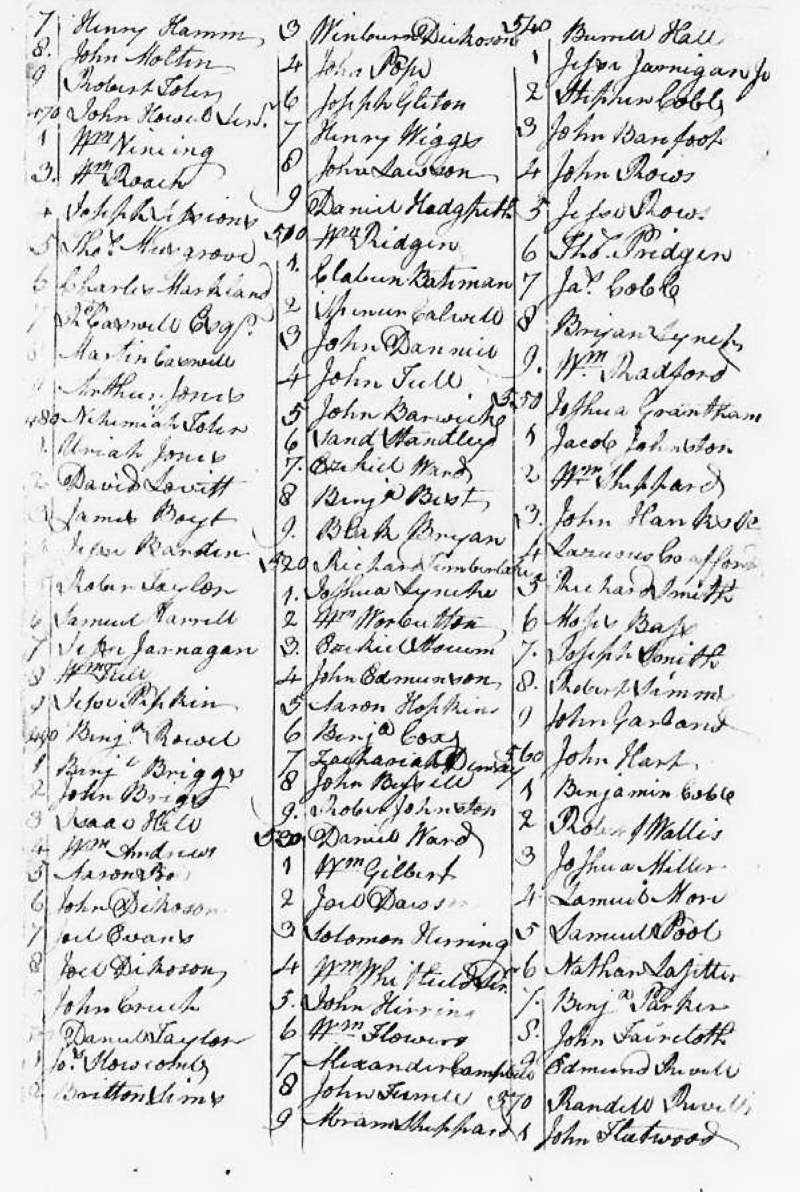 7 Henry Hamm
8. John Molten
9 Robert Toler
470 John Howel Senr.
1 Wm Nineing
3. Wm Roach
4 Joseph Sessions
5 Thos. Musgrove
6 Charles Markland
7 Caswell Esqr.
8 Martin Caswell
9 Arthur Jones
480 Nehemiah Toler
1. Uriah Jones
2 David Levitt
3 James Boyt
4 Jesse Barden
5 Rober Taylor
6 Samuel Harrell
7 Jesse Jarnagan
8 Wm Tull
9 Jesse Pipkin
490 Benja. Rowel
1 Benja Briggs
2 John Brigs
3 Isaac Hill
4 Wm Andrews
5 Aaron
6 John Dikoson
7 Joel Evans
8 Joel Dikoson
9 John Cruch
Daniel Taylor
1 Jos. Slowcomb
2 Britton Sims
3 Winburn Dickoson
4 John Pope
6 Joseph Gliton
7 Henry Wiggs
8 John Lawson
9 Daniel Hodgpeth
510 Wm Ridgen
1. Claburn Bateman
2 Spencer Calwell
3 John Danniel
4 John Tull
5 John Barwicke
6 Sand Standley
7. Ezekiel Ward
8 Benja Best
9. Blak Bryan
520 Richard Timberlake
1. Joshua Lynche
2 Wm Worbutton
3. Ezekiel Slocum
4 John Edmunson
5 Aaron Hopkins
6 Benja Cox
7 Zachariah
8 John Bizzell
9. Rober Johnston
530 Daniel Ward
1 Wm Gilbert
2 Joel Dawson
3 Solomon Herring
4 Wm Whitfield Sr.
5. John Herring
6 Wm Flowers
7 Alexander Campbell
8 John Terrell
9 Abram Sheppard
540 Burrell Hall
1 Jesse Jarnigan Jr
2 Stephen Cobb
3 John Barefoot
4 John Rows
5 Jesse Rows
6 Thos. Pridgen
7 Jas. Cobb
8 Bryan Lynch
9. Wm. Radford
550 Joshua Grantham
1 Jacob Johnston
2 Wm Sheppard
3. John Hanks
4 Lazurus Crafford
5 Richard Smith
6 Moses Bass
7. Joseph Smith
8. Robert Simms
9 John Garland
560 John Hart
1 Benjamin Cobb
2 Robert Wallis
3 Joshua Miller
4 Samuel More
5 Samuel Pool
6 Nathan Lasitter
7. Benja Parker
8. John Faircloth
9 Edmund Revell
570 Randell Revell
1 John Fleetwood